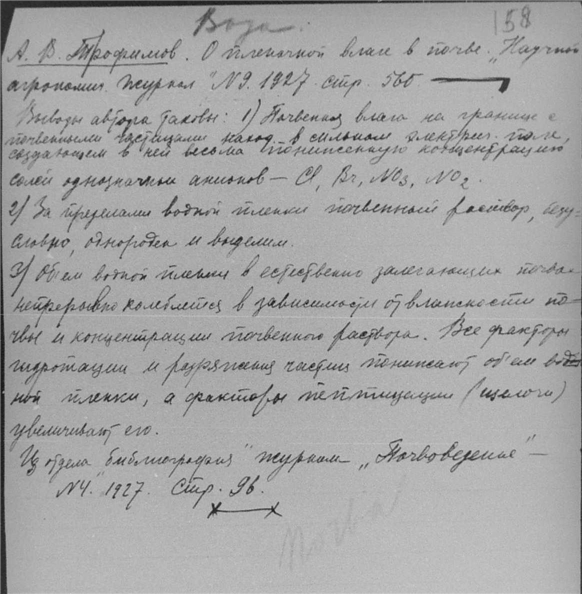 Вода.
158
А. В. Трофимов. О пленочной влаге в почве. „Научно
агрономич. журнал" №9. 1927. стр. 560
Выводы автора таковы: 1) Почвенная влага на границе с
почвенными частицами наход. в сильном электрич. поле,
создающем в ней весьма пониженную концентрацию
солей однозначных анионов — Cl, Br, NO3, NO2.
2) За пределами водной пленки почвенный раствор, безу-
словно, однороден и выделим.
3) Объем водной пленки в естественно залегающих почвах
непрерывно колеблется в зависимости от влажности по-
чвы и концентрации почвенного раствора. Все факторы
гидротации и разряжения частиц понижают объем вод
ной пленки, а факторы пептизации (щелочи)
увеличивают его.
Из отдела „библиография" журнала „Почвоведение" —
№4. 1927. Стр. 96.
Почва